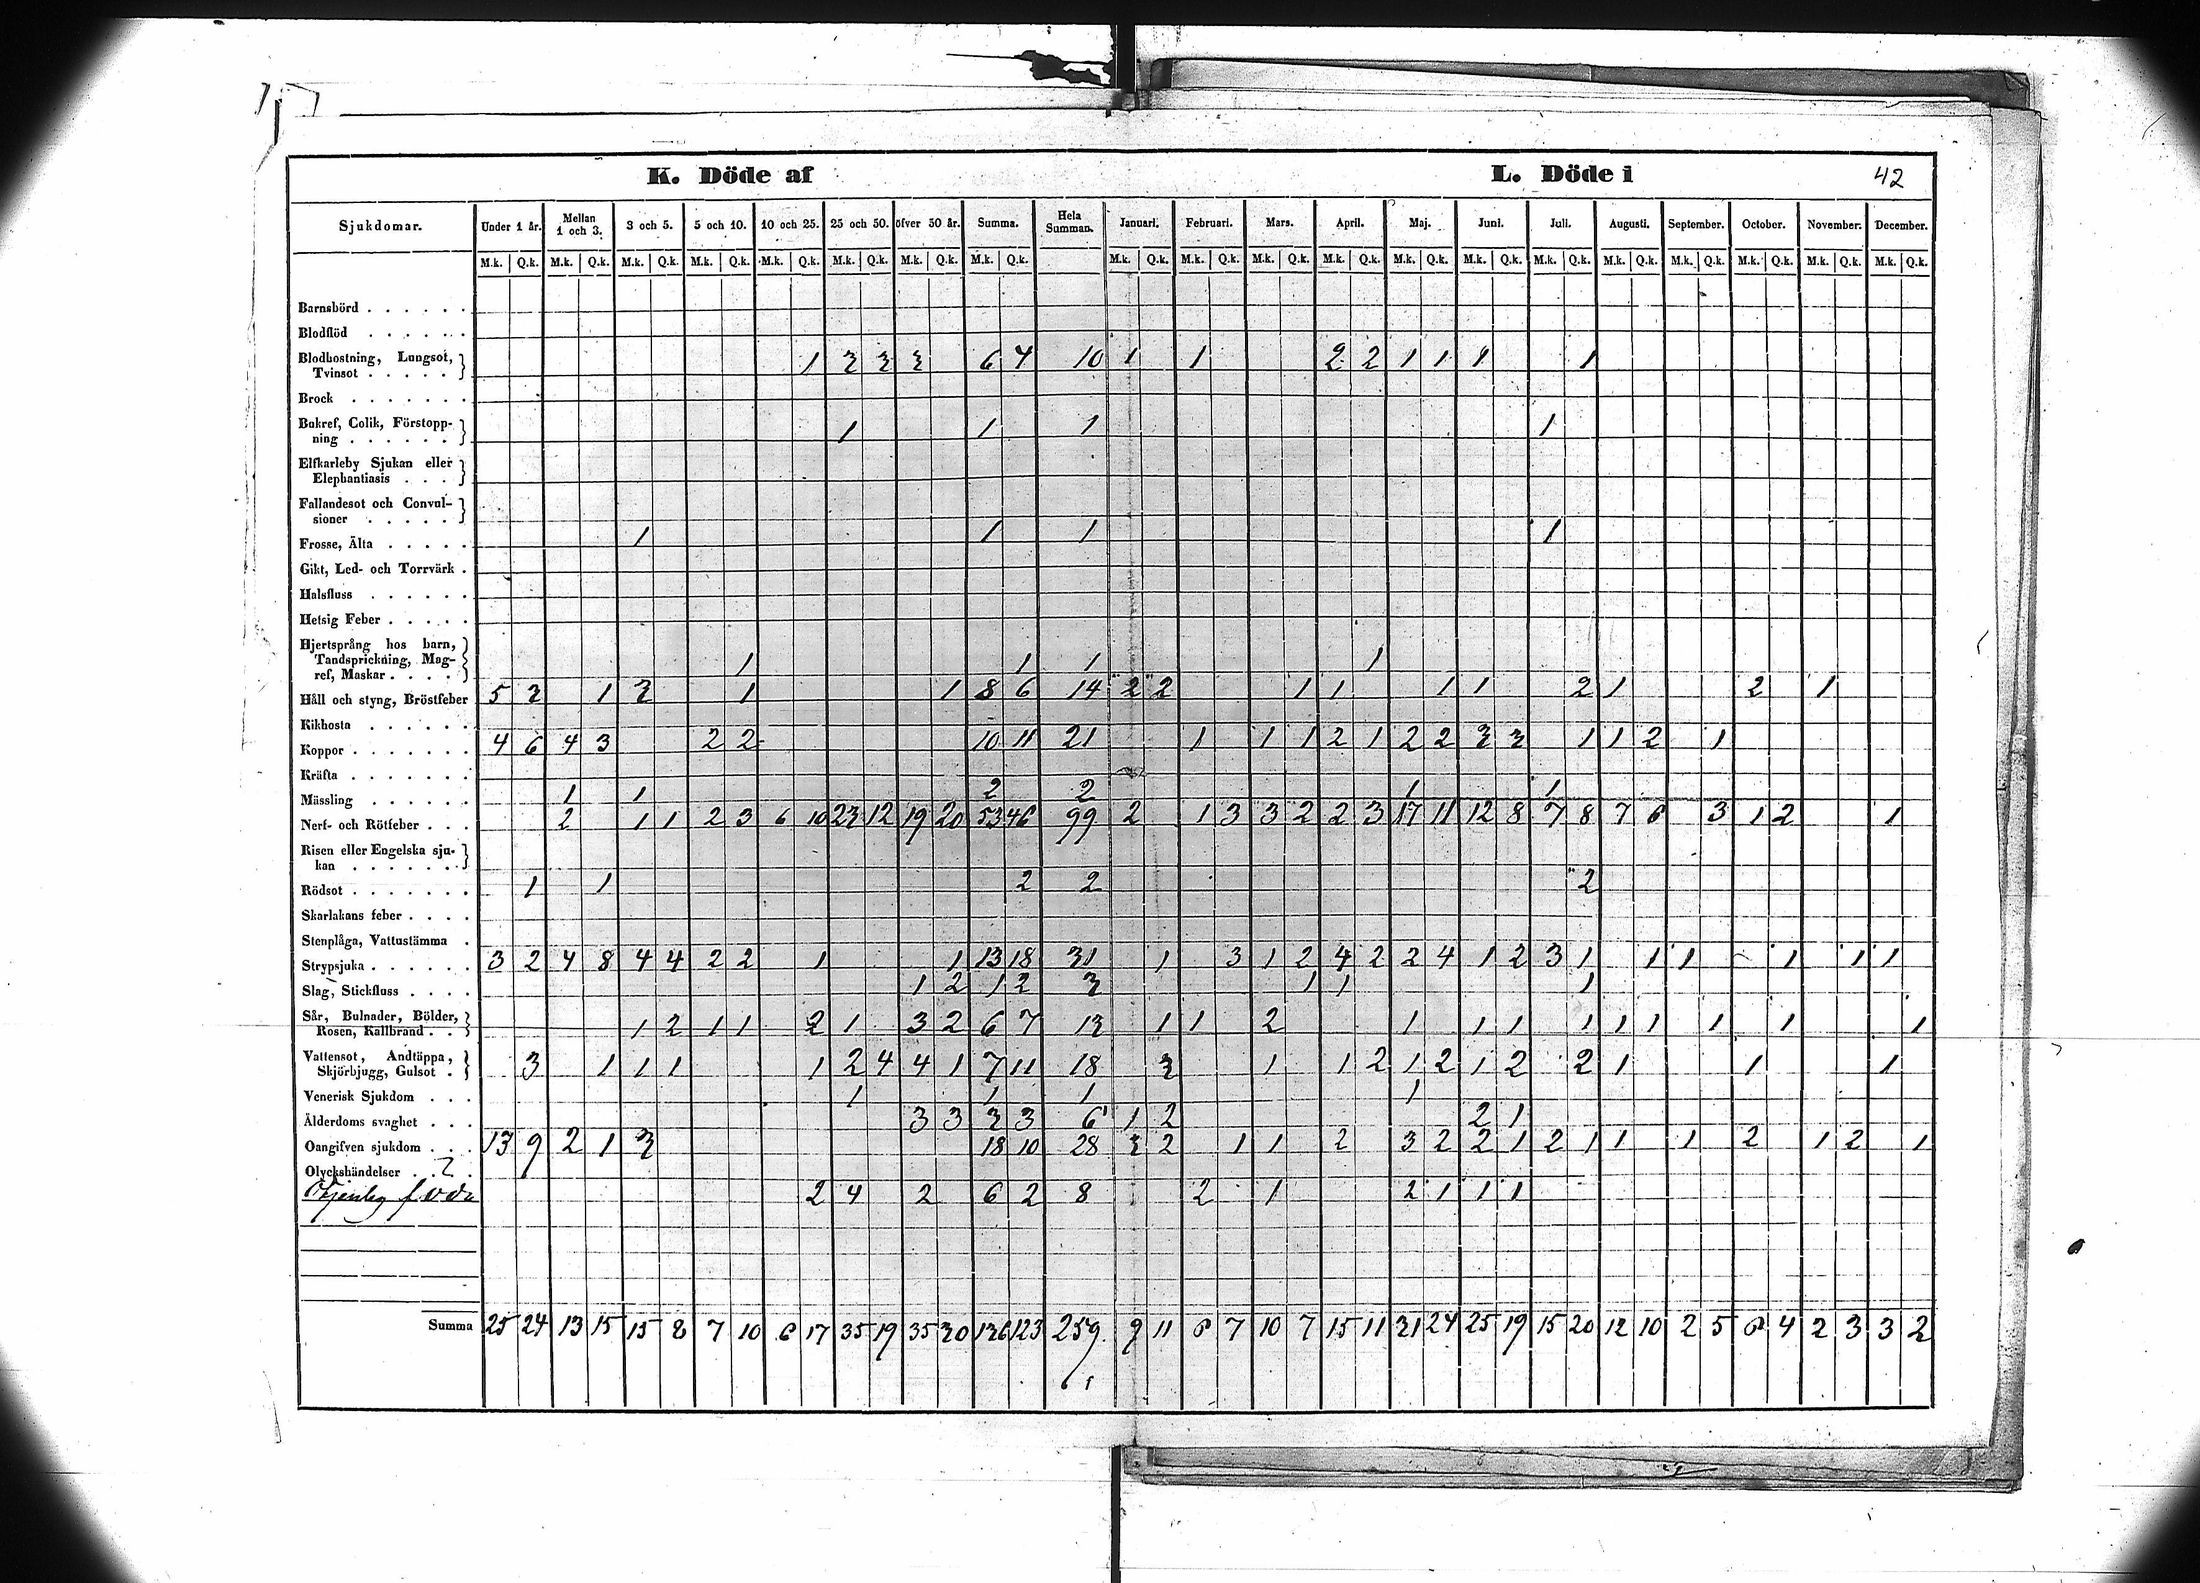 K. Döde af L. Döde i 42
Sjukdomar. Under 1 år. Mellan 1 och 3. 3 och 5. 5 och 10. 10 och 25. 25 och 50. öfver 50 år. Summa. Hela Summan. Januari. Februari. Mars. April. Maj. Juni. Juli. Augusti. September. October. November. December.
M.k. Q.k. M.k. Q.k. M.k. Q.k. M.k. Q.k. M.k. Q.k. M.k. Q.k. M.k. Q.k. M.k. Q.k. M.k. Q.k. M.k. Q.k. M.k. Q.k. M.k. Q.k. M.k. Q.k. M.k. Q.k. M.k. Q.k. M.k. Q.k. M.k. Q.k. M.k. Q.k. M.k. Q.k. M.k. Q.k.
Barnsbörd . . . . . .
Blodflöd . . . . . .
Blodhostning, Lungsot,
Tvinsot . . . . . 1 3 3 3 6 4 10 1 1 2 2 1 1 1 1
Brock . . . . . . .
Bukref, Colik, Förstopp-
ning . . . . . . 1 1 1 1
Elfkarleby Sjukan eller
Elephantiasis . . .
Fallandesot och Convul-
sioner . . . . .
Frosse, Älta . . . . . 1 1 1 1
Gikt, Led- och Torrvärk .
Halsfluss . . . . . .
Hetsig Feber . . . . .
Hjertsprång hos barn,
Tandsprickning, Mag-
ref, Maskar . . . . 1 1 1 1
Håll och styng, Bröstfeber 5 3 1 3 1 1 8 6 14 2 2 1 1 1 1 2 1 2 1
Kikhosta . . . . . .
Koppor . . . . . . . 4 6 4 3 2 2 10 11 21 1 1 1 2 1 2 2 3 3 1 1 2 1
Kräfta . . . . . . .
Mässling . . . . . . 1 1 2 2 1 1
Nerf- och Rötfeber . . . 2 1 1 2 3 6 10 23 12 19 20 53 46 99 2 1 3 3 2 2 3 17 11 12 8 7 8 7 6 3 1 2 1
Risen eller Engelska sju-
kan . . . . . .
Rödsot . . . . . . . 1 1 2 2 2
Skarlakans feber . . . .
Stenplåga, Vattustämma .
Strypsjuka . . . . . . 3 2 4 8 4 4 2 2 1 1 13 18 31 1 3 1 2 4 2 2 4 1 2 3 1 1 1 1 1 1
Slag, Stickfluss . . . . 1 2 1 2 3 1 1 1
Sår, Bulnader, Bölder,
Rosen, Kallbrand . . 1 2 1 1 2 1 3 2 6 7 13 1 1 2 1 1 1 1 1 1 1 1 1
Vattensot, Andtäppa,
Skjörbjugg, Gulsot . 3 1 1 1 1 2 4 4 1 7 11 18 3 1 1 2 1 2 1 2 2 1 1 1
Venerisk Sjukdom . . . 1 1 1 1
Ålderdoms svaghet . . . 3 3 3 3 6 1 2 2 1
Oangifven sjukdom . . . 13 9 2 1 3 18 10 28 3 2 1 1 2 3 2 2 1 2 1 1 1 2 1 2 1
Olyckshändelser . . 2 .
2 4 2 6 2 8 2 1 2 1 1 1
Summa 25 24 13 15 15 8 7 10 6 17 35 19 35 30 136 123 259 9 11 6 7 10 7 15 11 31 24 25 19 15 20 12 10 2 5 6 4 2 3 3 2